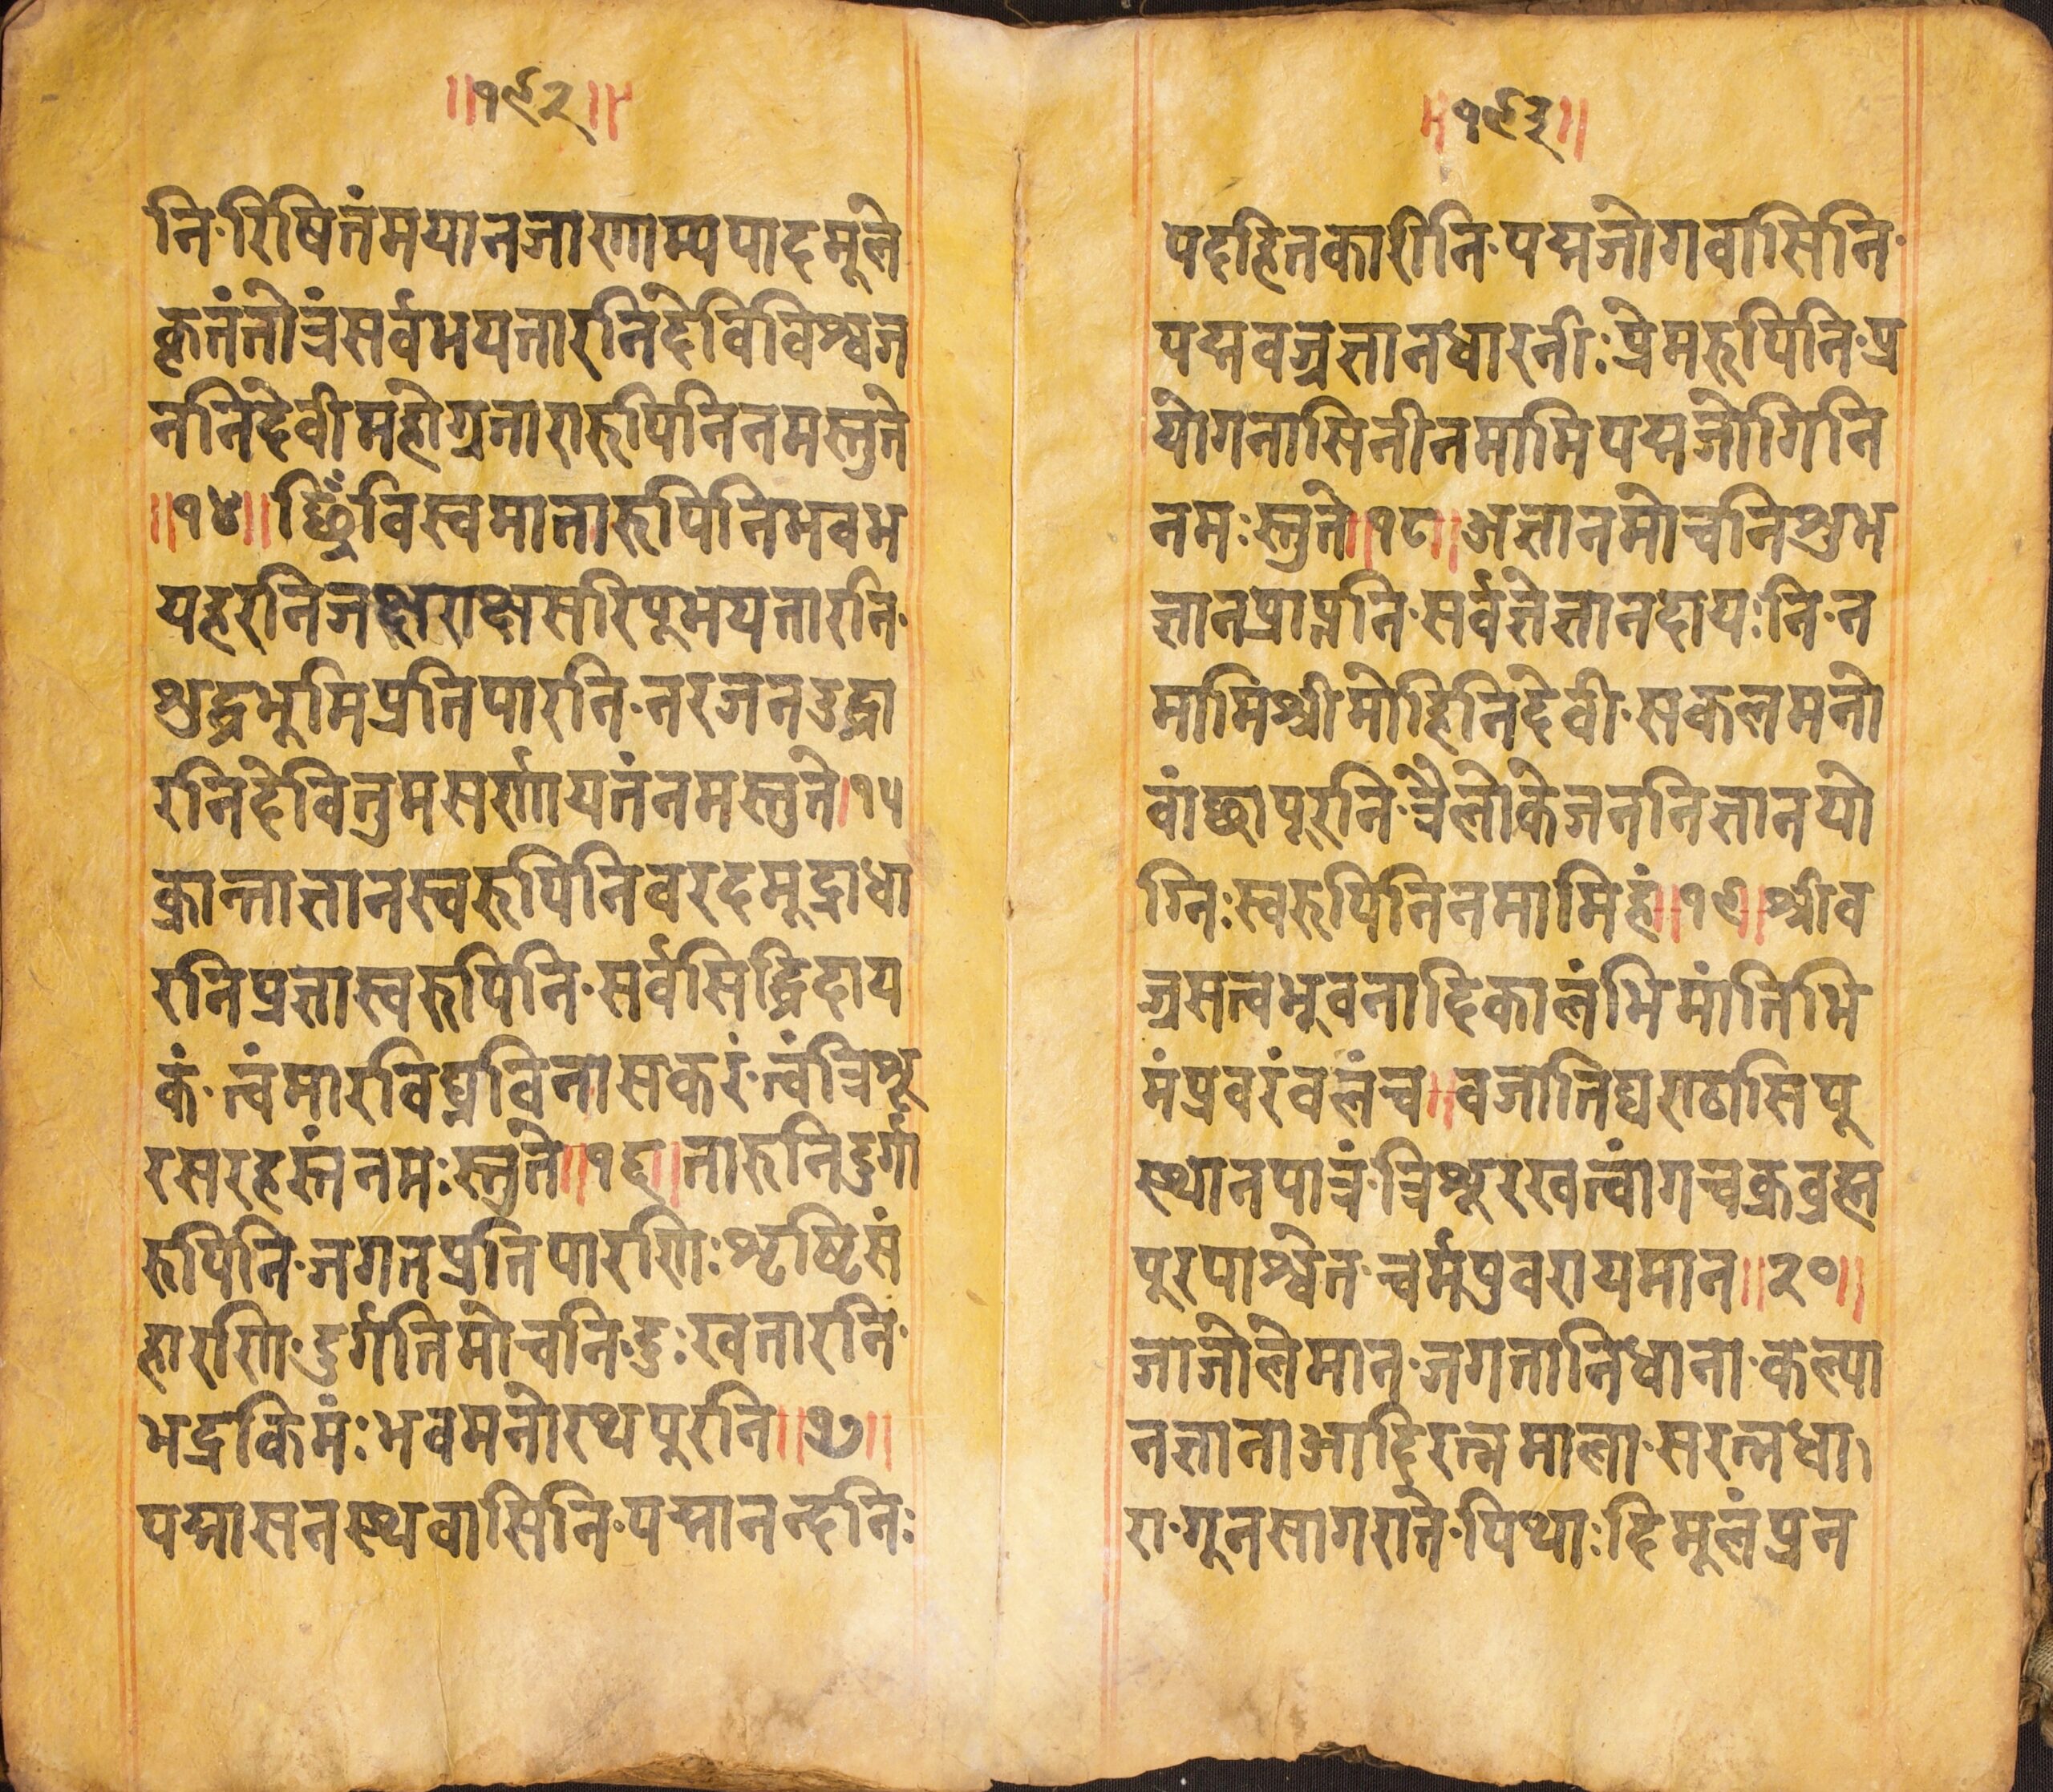 ॥१९२॥
नि·रिषितंमयानजारणाम्यपादमूले
कृतंतोत्रंसर्वभयतारनिंदेविविश्वज
ननिदेवीमहोग्रतारारूपिनिनमस्तुते
॥१४॥ विस्वमातारूपिनिभवभ
यहरनिजक्षराक्षसरिपूभयतारनि·
शुद्धभुमिप्रतिपारनि·नरजनउद्धा
रनिदेवितुमसर्णायतंनमस्तुते।१५
क्रान्ताज्ञानस्वरूपिनिवरदमूद्राधा
रनिप्रज्ञास्वरूपिनि·सर्वसिद्धिदाय
कं·त्वंमारविघ्नविनासकरं·त्वंत्रिशू
रसरहस्तंनमःस्तुते॥१६॥तारुनिदुर्गा
रूपिनि·जगतप्रतिपारणिःशृष्टिसं
हारणि·दुर्गतिमोचनि·दुःखतारनि·
भद्रकिमंःभवमनोरथपुरनि॥१७॥
पद्मासनस्थवासिनि·पद्मानन्दनिः
॥१९३॥
पदहितकारीनि·पद्मजोगवासिनि·
पद्मवज्रज्ञानधारनीःप्रेमरूपिनि·प्र
योगनासिनीनमामिपद्मजोगिनि
नमःस्तुते॥१८॥अज्ञानमोचनिशुभ
ज्ञानप्राप्ननि·सर्वज्ञेज्ञानदायःनि·न
मामिश्रीमोहिनिदेवी·सकलमनो
वांछापूरनि·त्रैलोकेजननिज्ञानयो
ग्निःस्वरूपिनिनमामिहं॥१९॥श्रीव
ज्रसत्वभूवनादिकालंभिमांतिभि
मंप्रवरंवलंच॥वजातिद्यराठासिपू
स्थानपात्रं·त्रिशूरखत्वांगचक्रव्रह्म
पुरपाश्वेत·चर्मप्रुवरायमान॥२०॥
जाजोलेमान·जगतानिधाना·कल्पा
नज्ञानाआदिरत्नमाला·सरत्नधा।
रा·गूनसागराते·पिथाःहिमूलंप्रन